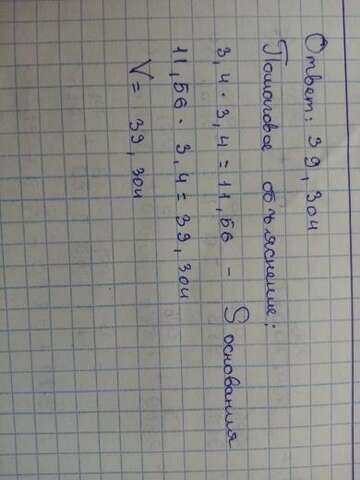 Ответ: 39,304
Пошаговое объяснение:
3,4 · 3,4 = 11,56 - S основания
11,56 · 3,4 = 39,304
V = 39,304